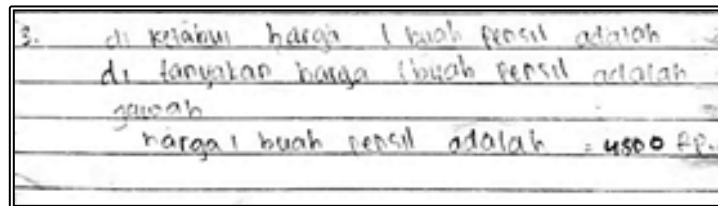 3. di ketahui harga 1 buah pensil adalah
di tanyakan harga 1 buah pensil adalah
jawab
harga 1 buah pensil adalah = 4500 Rp.